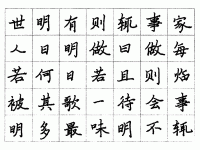 世明有则辄事家
人日明做曰做每
若何日若且则焰
被其歌一待会事
明多最味明不辄